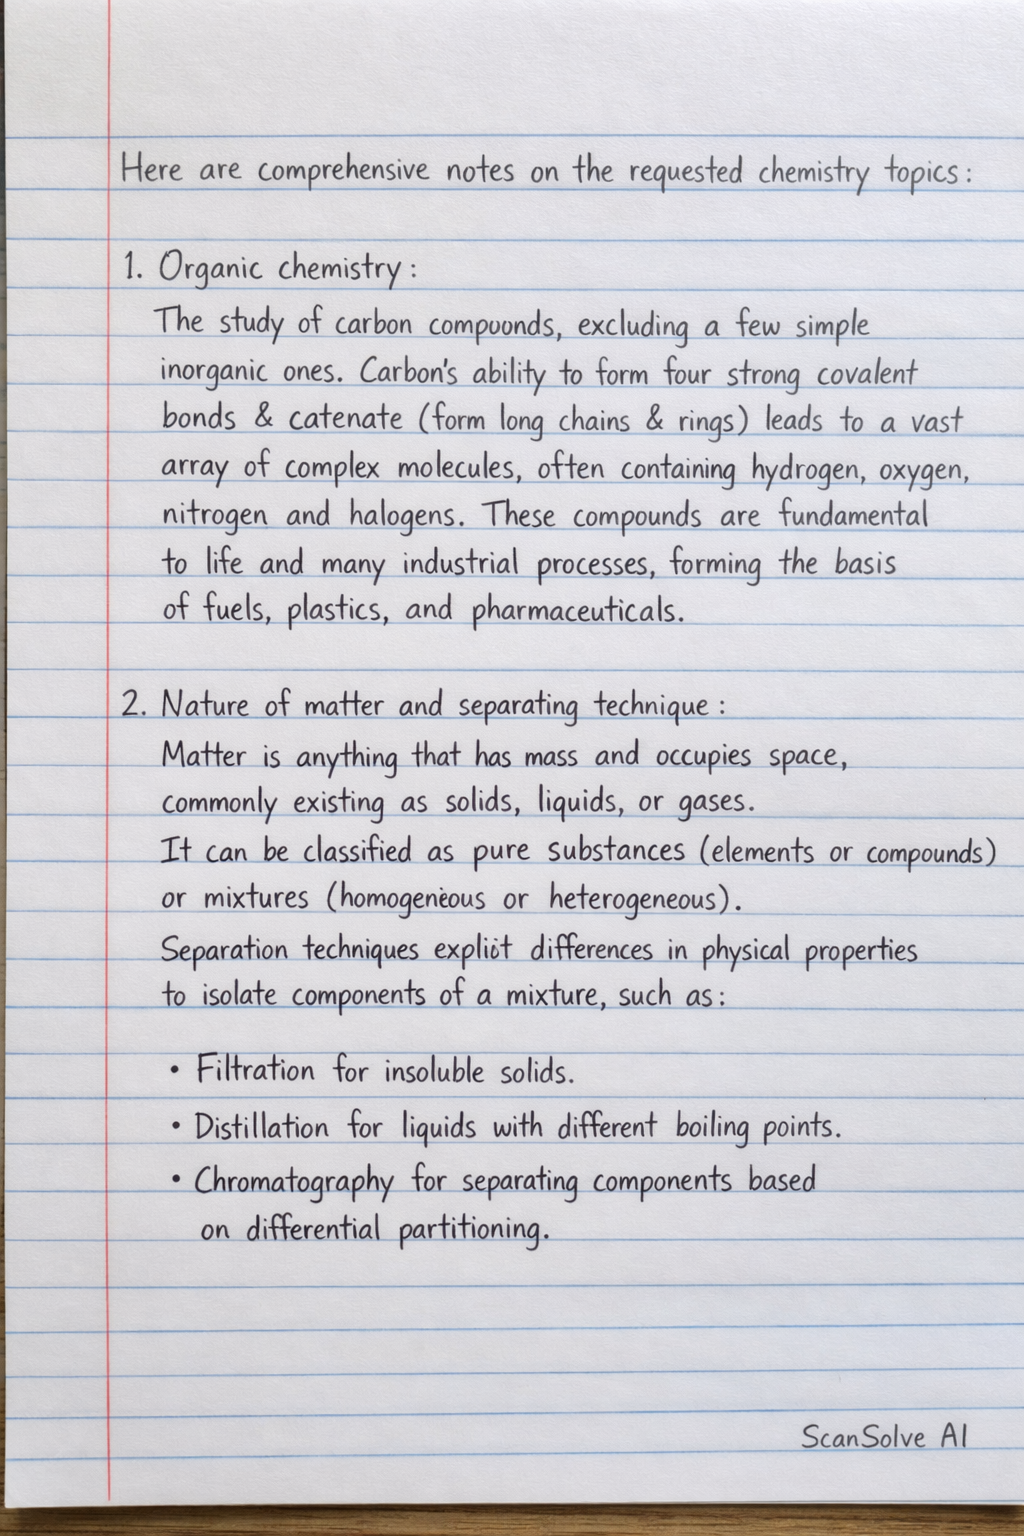 Here are comprehensive notes on the requested chemistry topics:
1. Organic chemistry:
The study of carbon compounds, excluding a few simple
inorganic ones. Carbon's ability to form four strong covalent
bonds & catenate (form long chains & rings) leads to a vast
array of complex molecules, often containing hydrogen, oxygen,
nitrogen and halogens. These compounds are fundamental
to life and many industrial processes, forming the basis
of fuels, plastics, and pharmaceuticals.
2. Nature of matter and separating technique:
Matter is anything that has mass and occupies space,
commonly existing as solids, liquids, or gases.
It can be classified as pure substances (elements or compounds)
or mixtures (homogeneous or heterogeneous).
Separation techniques exploit differences in physical properties
to isolate components of a mixture, such as:
• Filtration for insoluble solids.
• Distillation for liquids with different boiling points.
• Chromatography for separating components based
on differential partitioning.
ScanSolve AI